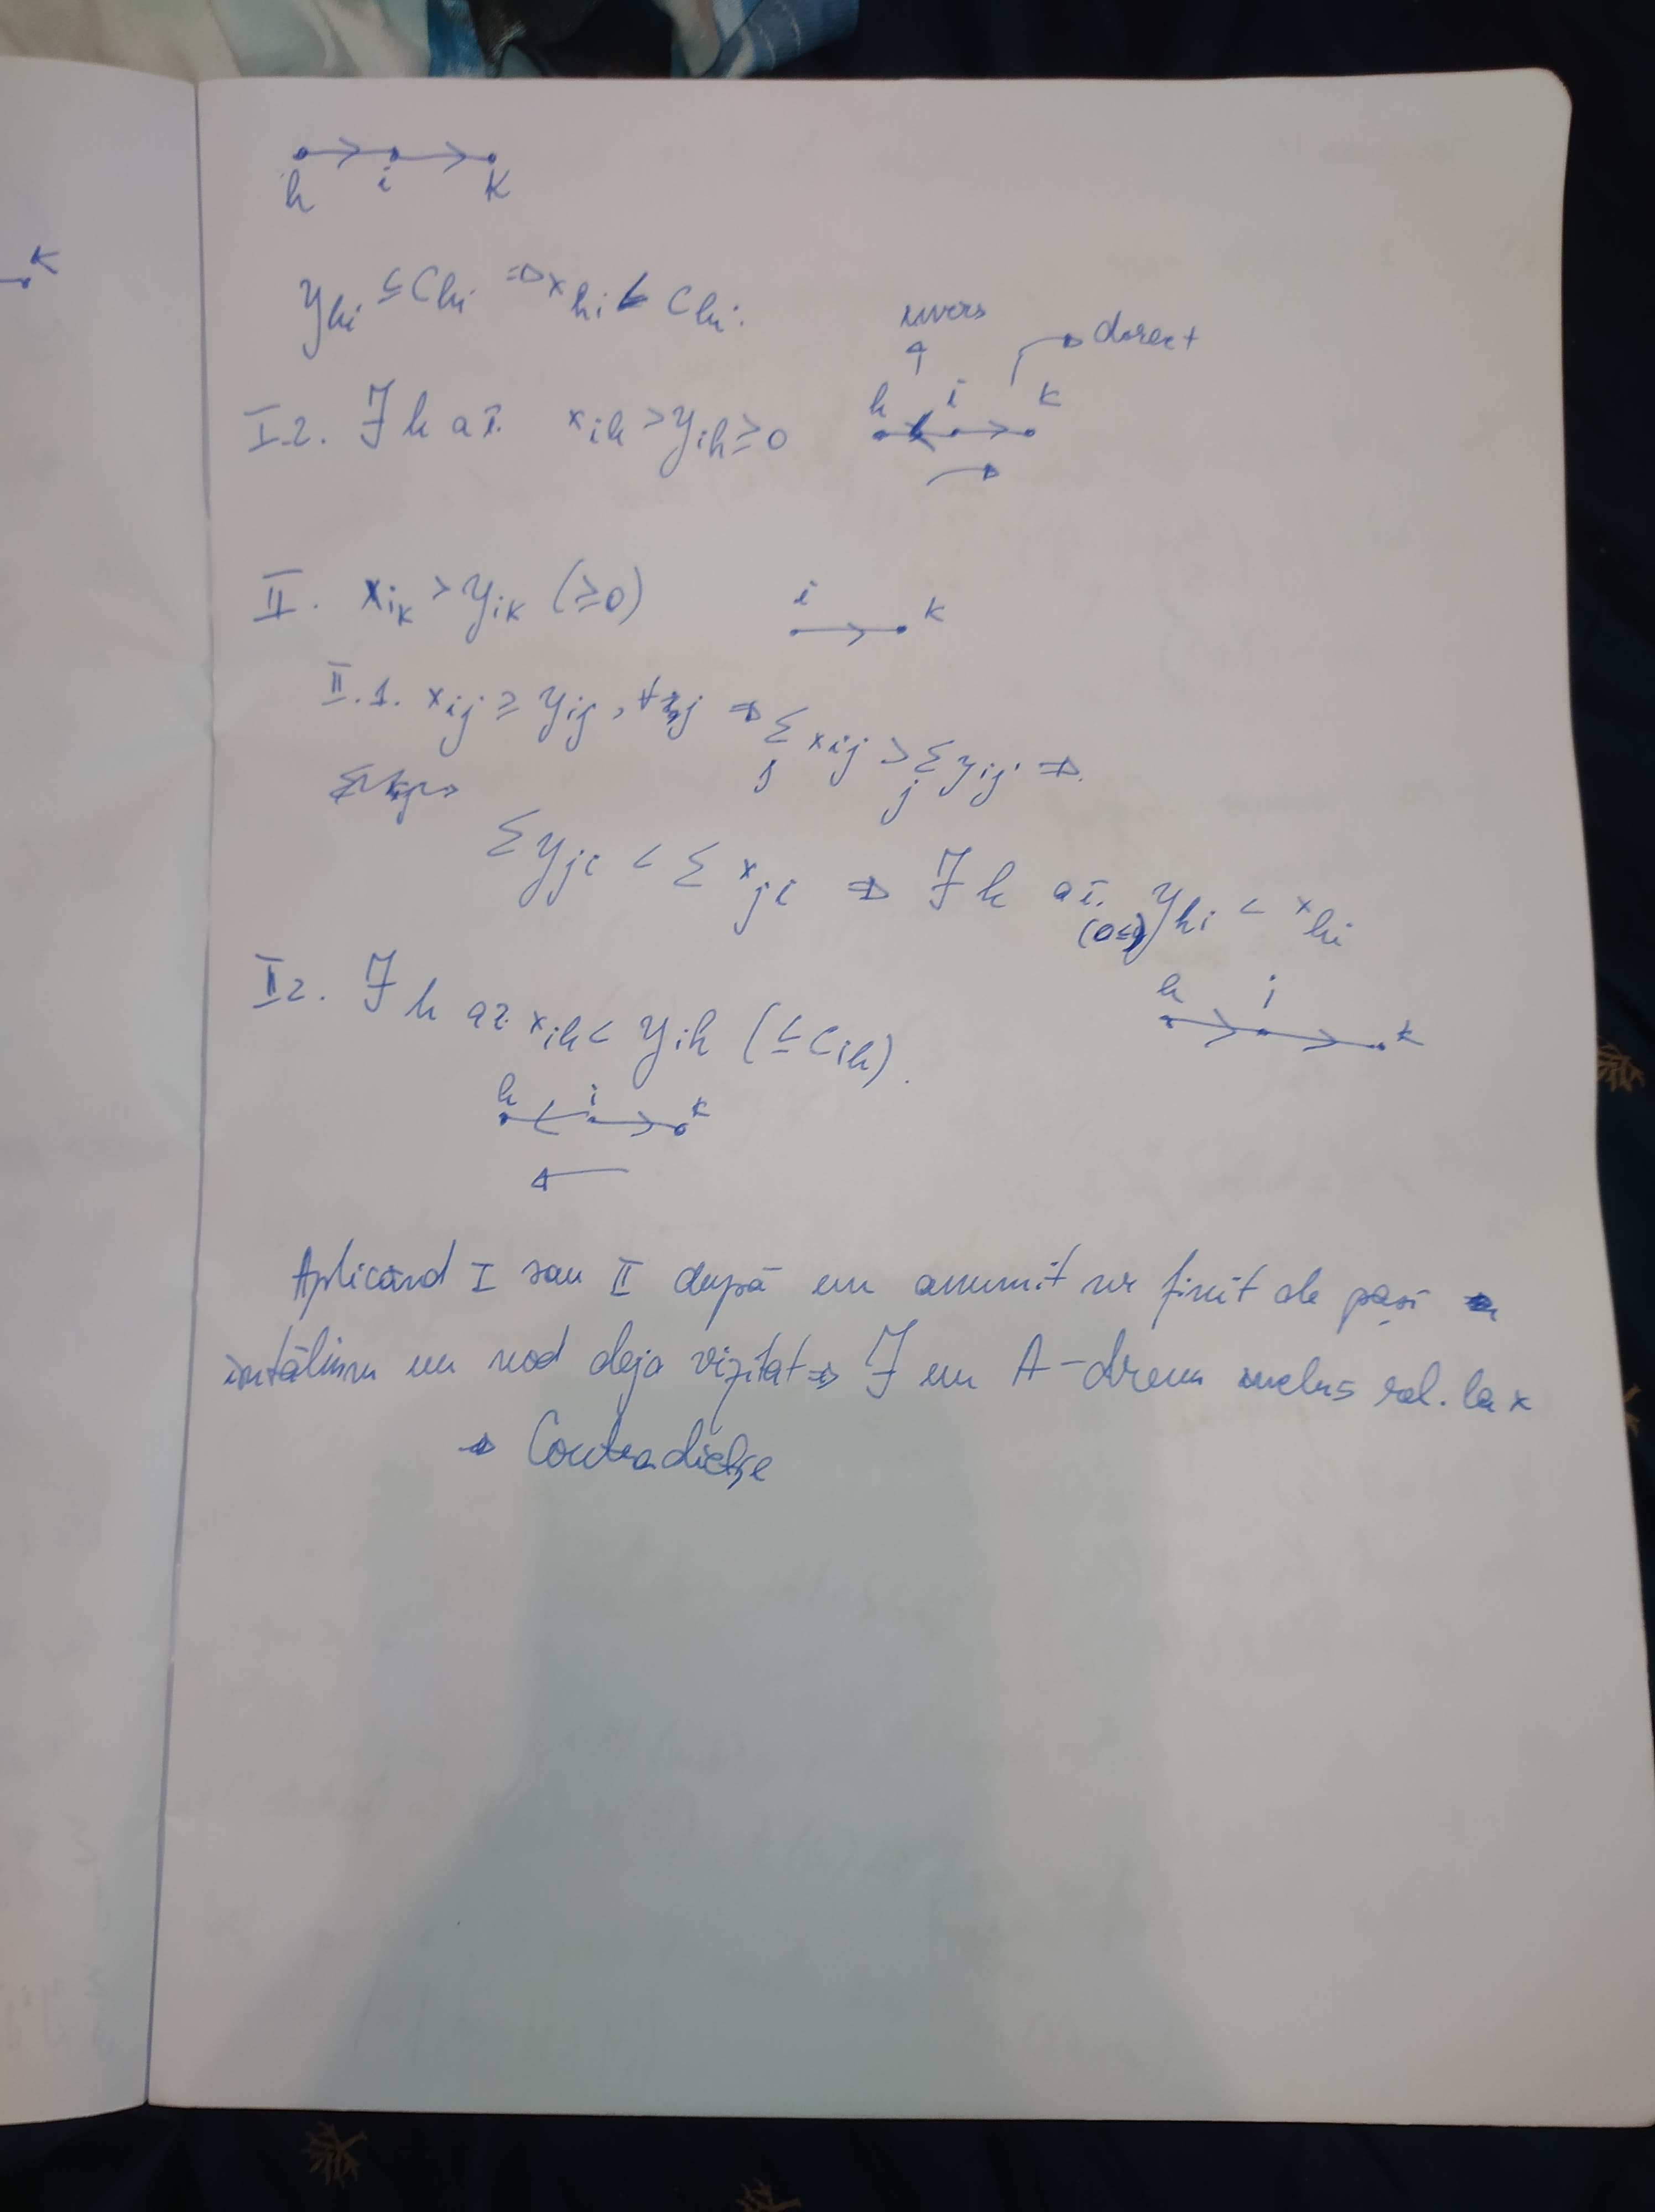 h i k
k
y_hi ≤ c_hi ⇒ x_hi < c_hi.
invers
direct
h i k
I.2. ∃ h a.î. x_ih > y_ih ≥ 0
II. x_ik > y_ik (≥0)
i k
II.1. x_ij ≥ y_ij, ∀ j ⇒ Σ_j x_ij > Σ_j y_ij ⇒
Σ y_ji < Σ x_ji ⇒ ∃ h a.î. y_hi < x_hi
(0≤)
h i k
II2. ∃ h a.î. x_ih < y_ih (≤ c_ih).
h i k
Aplicând I sau II după un anumit nr finit de pași
întâlnim un nod deja vizitat ⇒ ∃ un A-drum închis rel. la x
⇒ Contradicție